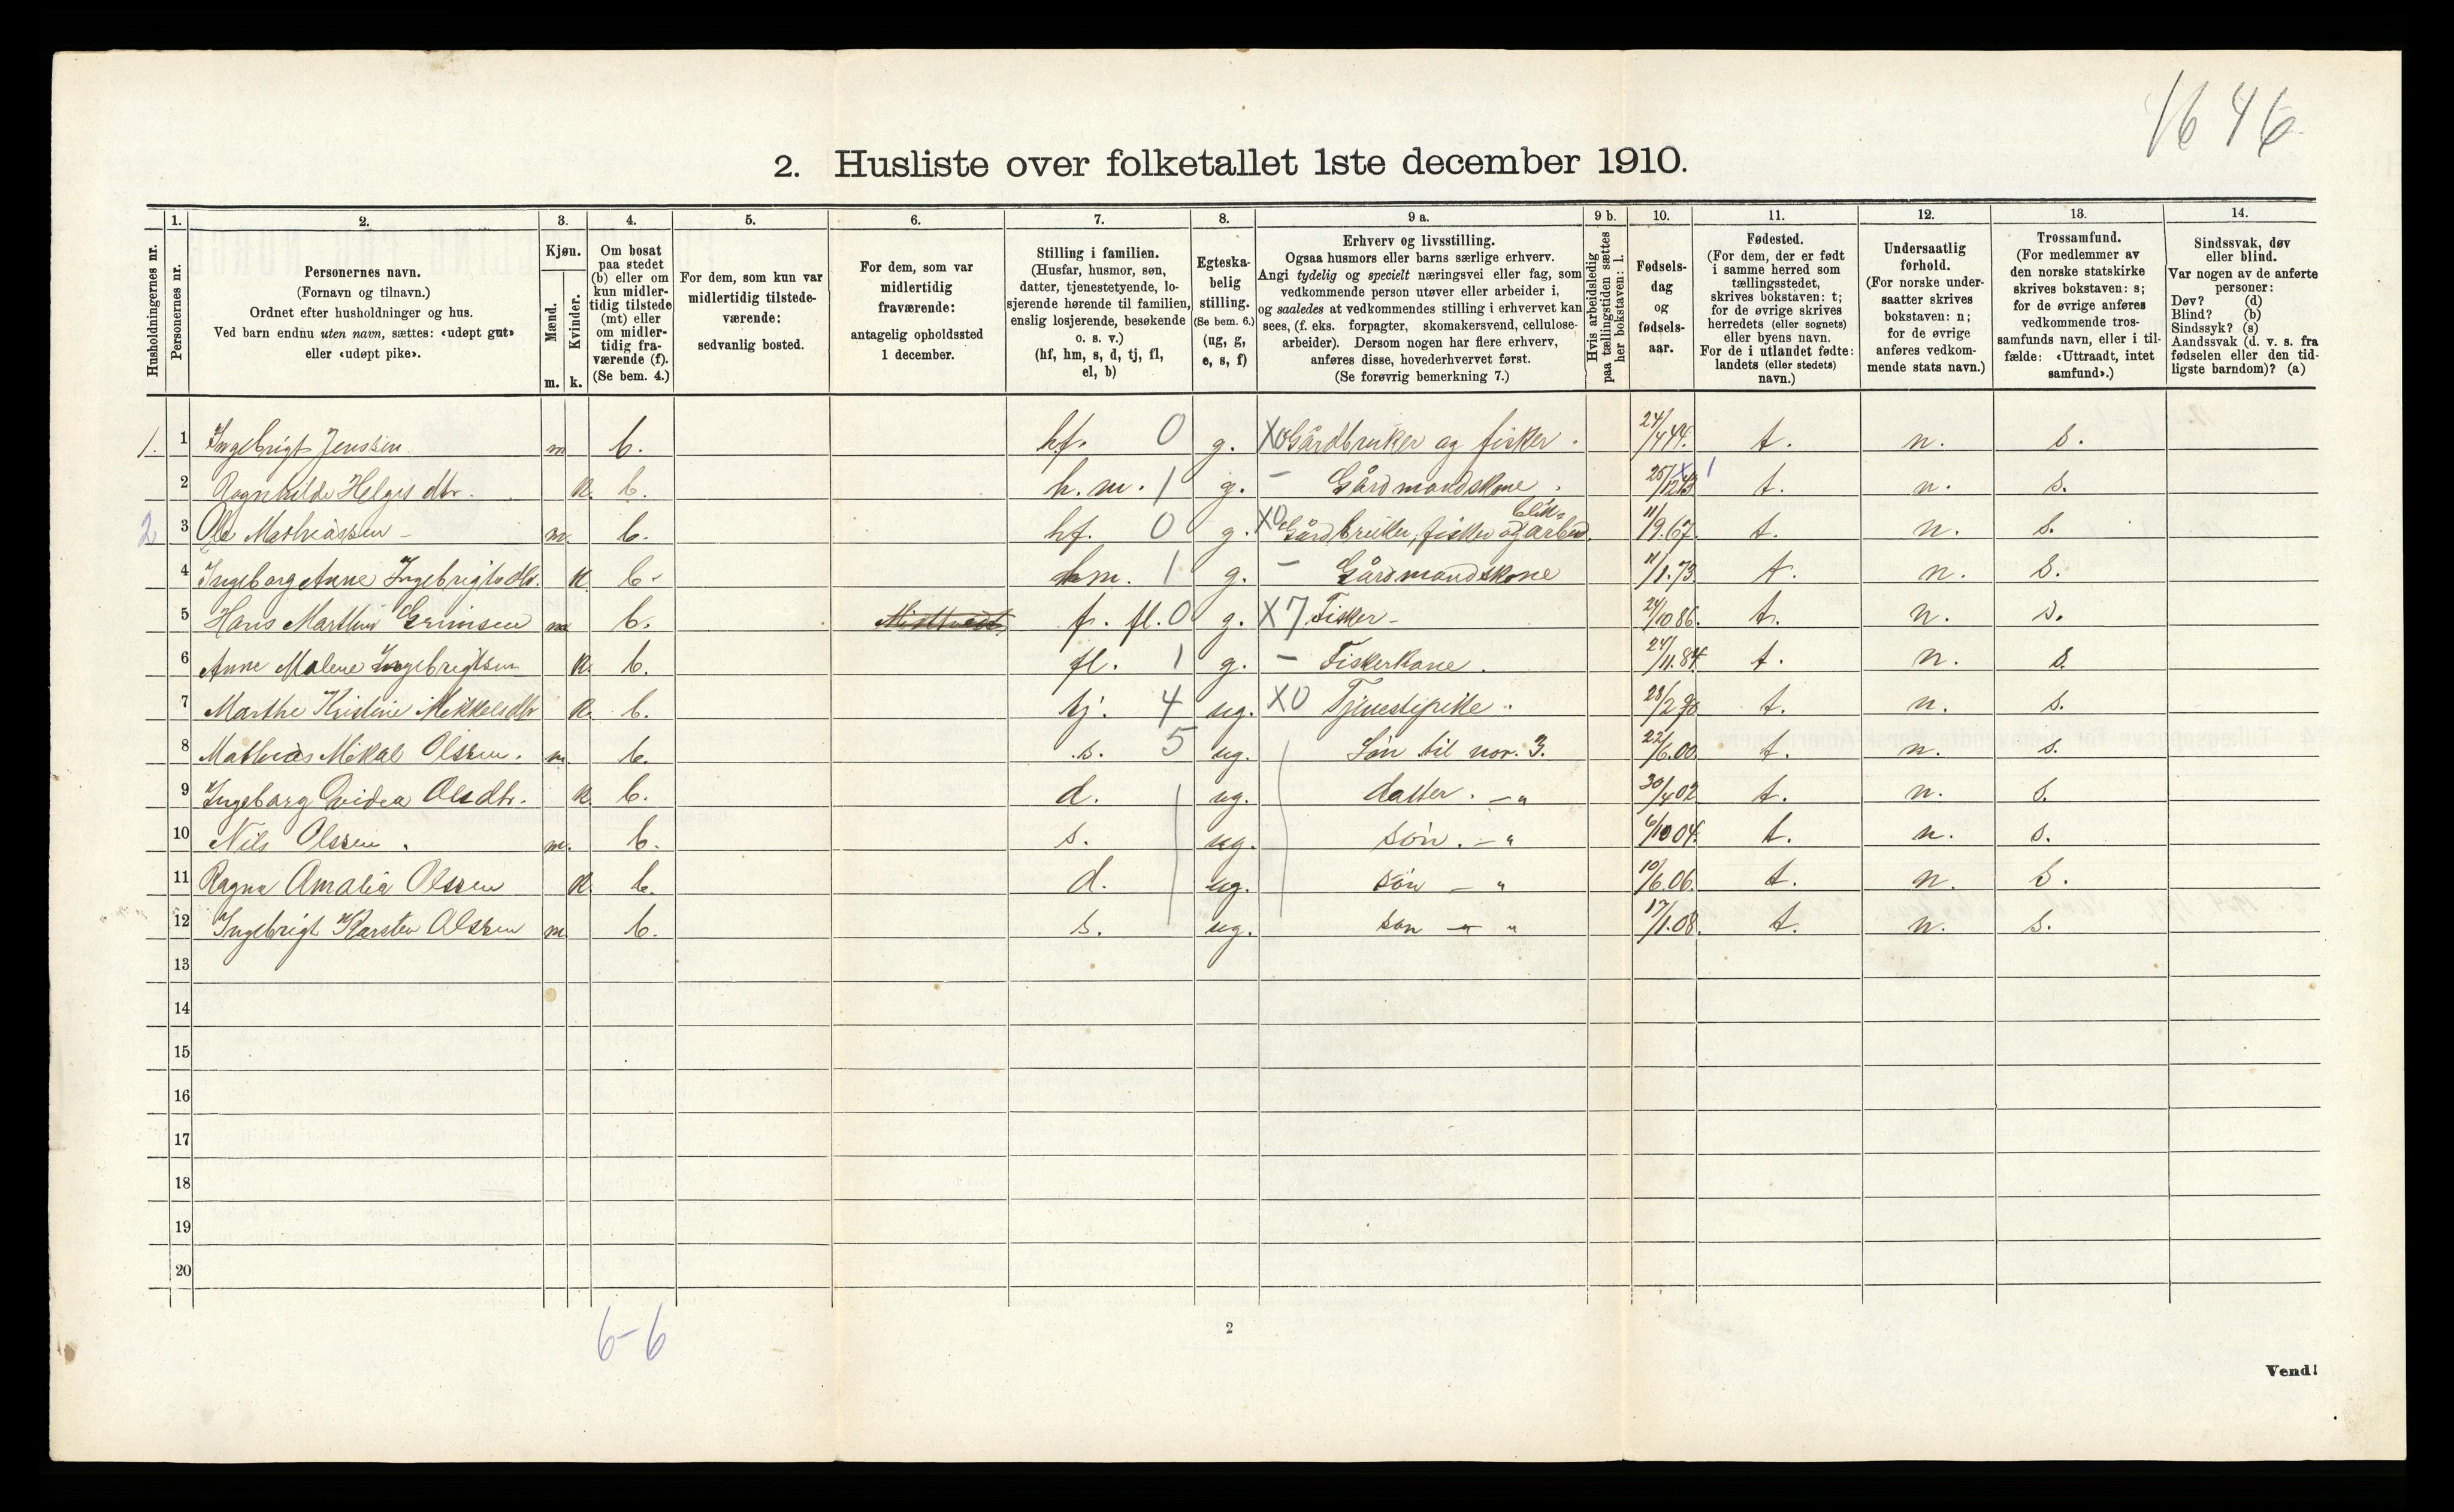 1646
2. Husliste over folketallet 1ste december 1910.
Husholdningernes nr.
1.
Personernes nr.
2.
Personernes navn.
(Fornavn og tilnavn.)
Ordnet efter husholdninger og hus.
Ved barn endnu uten navn, sættes: «udøpt gut»
eller «udøpt pike».
3.
Kjøn.
Mænd.
Kvinder.
m. k.
4.
Om bosat
paa stedet
(b) eller om
kun midler-
tidig tilstede
(mt) eller
om midler-
tidig fra-
værende (f).
(Se bem. 4.)
5.
For dem, som kun var
midlertidig tilstede-
værende:
sedvanlig bosted.
6.
For dem, som var
midlertidig
fraværende:
antagelig opholdssted
1 december.
7.
Stilling i familien.
(Husfar, husmor, søn,
datter, tjenestetyende, lo-
sjerende hørende til familien,
enslig losjerende, besøkende
o. s. v.)
(hf, hm, s, d, tj, fl,
el, b)
8.
Egteska-
belig
stilling.
(Se bem. 6.)
(ug, g,
e, s, f)
9 a.
Erhverv og livsstilling.
Ogsaa husmors eller barns særlige erhverv.
Angi tydelig og specielt næringsvei eller fag, som
vedkommende person utøver eller arbeider i,
og saaledes at vedkommendes stilling i erhvervet kan
sees, (f. eks. forpagter, skomakersvend, cellulose-
arbeider). Dersom nogen har flere erhverv,
anføres disse, hovederhvervet først.
(Se forøvrig bemerkning 7.)
9 b.
Hvis arbeidsledig
paa tællingstiden sættes
her bokstaven: l.
10.
Fødsels-
dag
og
fødsels-
aar.
11.
Fødested.
(For dem, der er født
i samme herred som
tællingsstedet,
skrives bokstaven: t;
for de øvrige skrives
herredets (eller sognets)
eller byens navn.
For de i utlandet fødte:
landets (eller stedets)
navn.)
12.
Undersaatlig
forhold.
(For norske under-
saatter skrives
bokstaven: n;
for de øvrige
anføres vedkom-
mende stats navn.)
13.
Trossamfund.
(For medlemmer av
den norske statskirke
skrives bokstaven: s;
for de øvrige anføres
vedkommende tros-
samfunds navn, eller i til-
fælde: «Uttraadt, intet
samfund».)
14.
Sindssvak, døv
eller blind.
Var nogen av de anførte
personer:
Døv? (d)
Blind? (b)
Sindssyk? (s)
Aandssvak (d. v. s. fra
fødselen eller den tid-
ligste barndom)? (a)
1. 1 Ingebrigt Jenssen m b. hf. 0 g. X0 Gårdbruker og fisker. 24/4 44. t. n. s.
2 Ragnhilde Helgesdtr. k. b. h.m. 1 g. - Gårdmandskone. 25/12 43 1 t. n. s.
2 3 Ole Mathiassen - m. b. hf. 0 g. X0 Gårdbruker, fisker og blik- arbeid. 11/9.67. t. n. s.
4 Ingeborg Anne Ingebrigtsdtr. k. b. hm. 1 g. - Gårdmandskone 11/1.73 t. n. s.
5 Hans Martin Grimsen m b. f. fl. 0 g. X7 Fisker - 24/10 86. t. n. s.
6 Anne Malene Ingebrigtsen k. b. fl. 1 g. - Fiskerkone. 24/11.84 t. n. s.
7 Marthe Kristine Mikkelsdtr k. b. tj. 4 ug. X0 Tjenestepike. 28/2 90 t. n. s.
8 Mathias Mikal Olssen. m. b. s. 5 ug. Søn til nor. 3. 22/6.00. t. n. s.
9 Ingeborg Olsdtr. k. b. d. ug. datter. - " 30/4 02 t. n. s.
10 Nils Olssen. m. b. s. ug. søn. - " 6/10 04. t. n. s.
11 Ragna Amalia Olssen k. b. d. ug. søn - " 10/6.06. t. n. s.
12 Ingebrigt Karsten Olssen m b. s. ug. søn - " 17/1.08. t. n. s.
13
14
15
16
17
18
19
20
6-6
2
Vend!